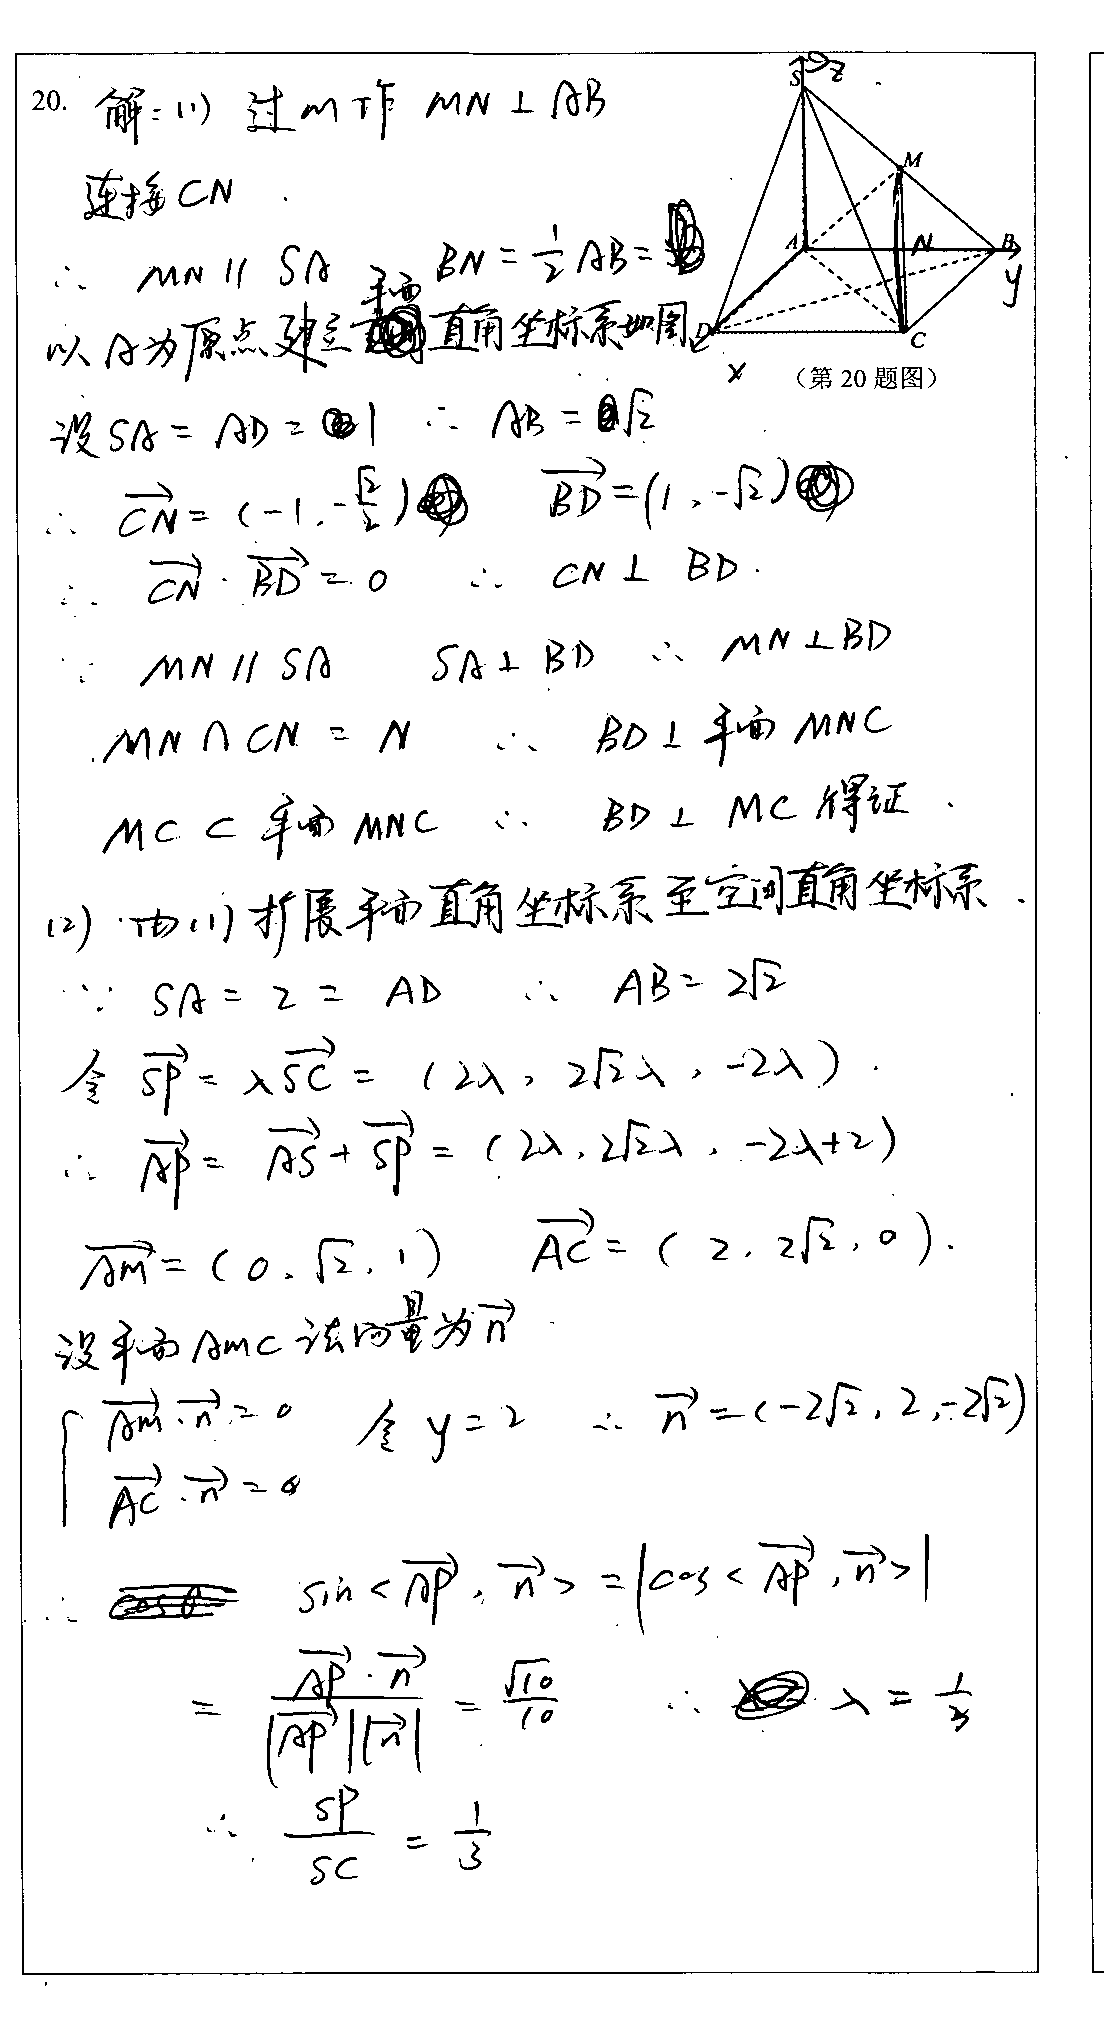 20. 解:(1) 过M作 MN⊥AB
连接CN.
∴ MN∥SA BN=½AB=
以A为原点建立平面直角坐标系如图
设SA=AD=1 ∴ AB=√2
∴ →CN=(-1,-√2/2) →BD=(1,-√2)
∴ →CN·→BD=0 ∴ CN⊥BD.
∵ MN∥SA SA⊥BD ∴ MN⊥BD
MN∩CN=N ∴ BD⊥平面MNC
MC⊂平面MNC ∴ BD⊥MC得证.
(2) 由(1)扩展平面直角坐标系至空间直角坐标系.
∵ SA=2=AD ∴ AB=2√2
令 →SP=λ→SC=(2λ,2√2λ,-2λ).
∴ →AP=→AS+→SP=(2λ,2√2λ,-2λ+2)
→AM=(0,√2,1) →AC=(2,2√2,0).
设平面AMC法向量为→n
{ →AM·→n=0 令y=2 ∴ →n=(-2√2,2,-2√2)
→AC·→n=0
∴ sin<→AP,→n>=|cos<→AP,→n>|
= →AP·→n/|→AP||→n| = √10/10 ∴ λ=1/3
∴ SP/SC=1/3
S z
M
A N B
y
D C
x
(第20题图)